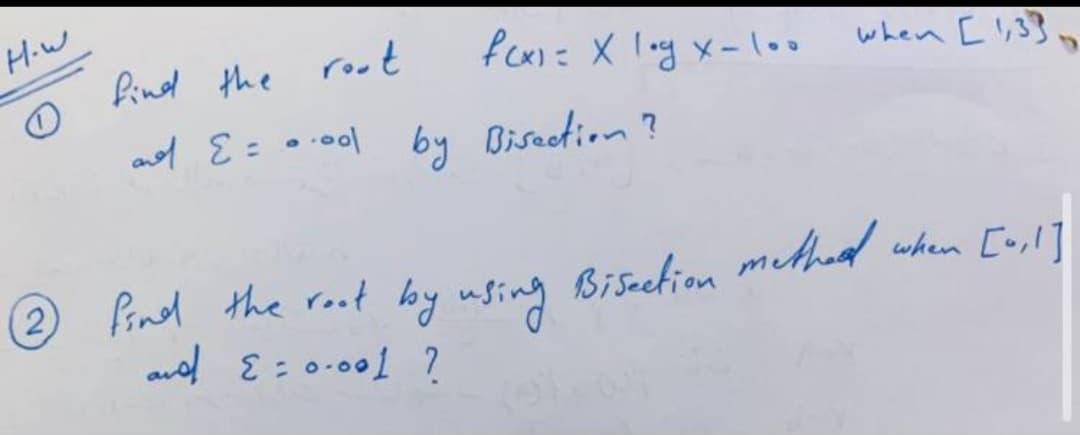 H.W
① find the root f(x) = X log x - 100 when [1,3].
and ε = 0.001 by Bisection ?
② find the root by using Bisection method when [0,1]
and ε = 0.001 ?